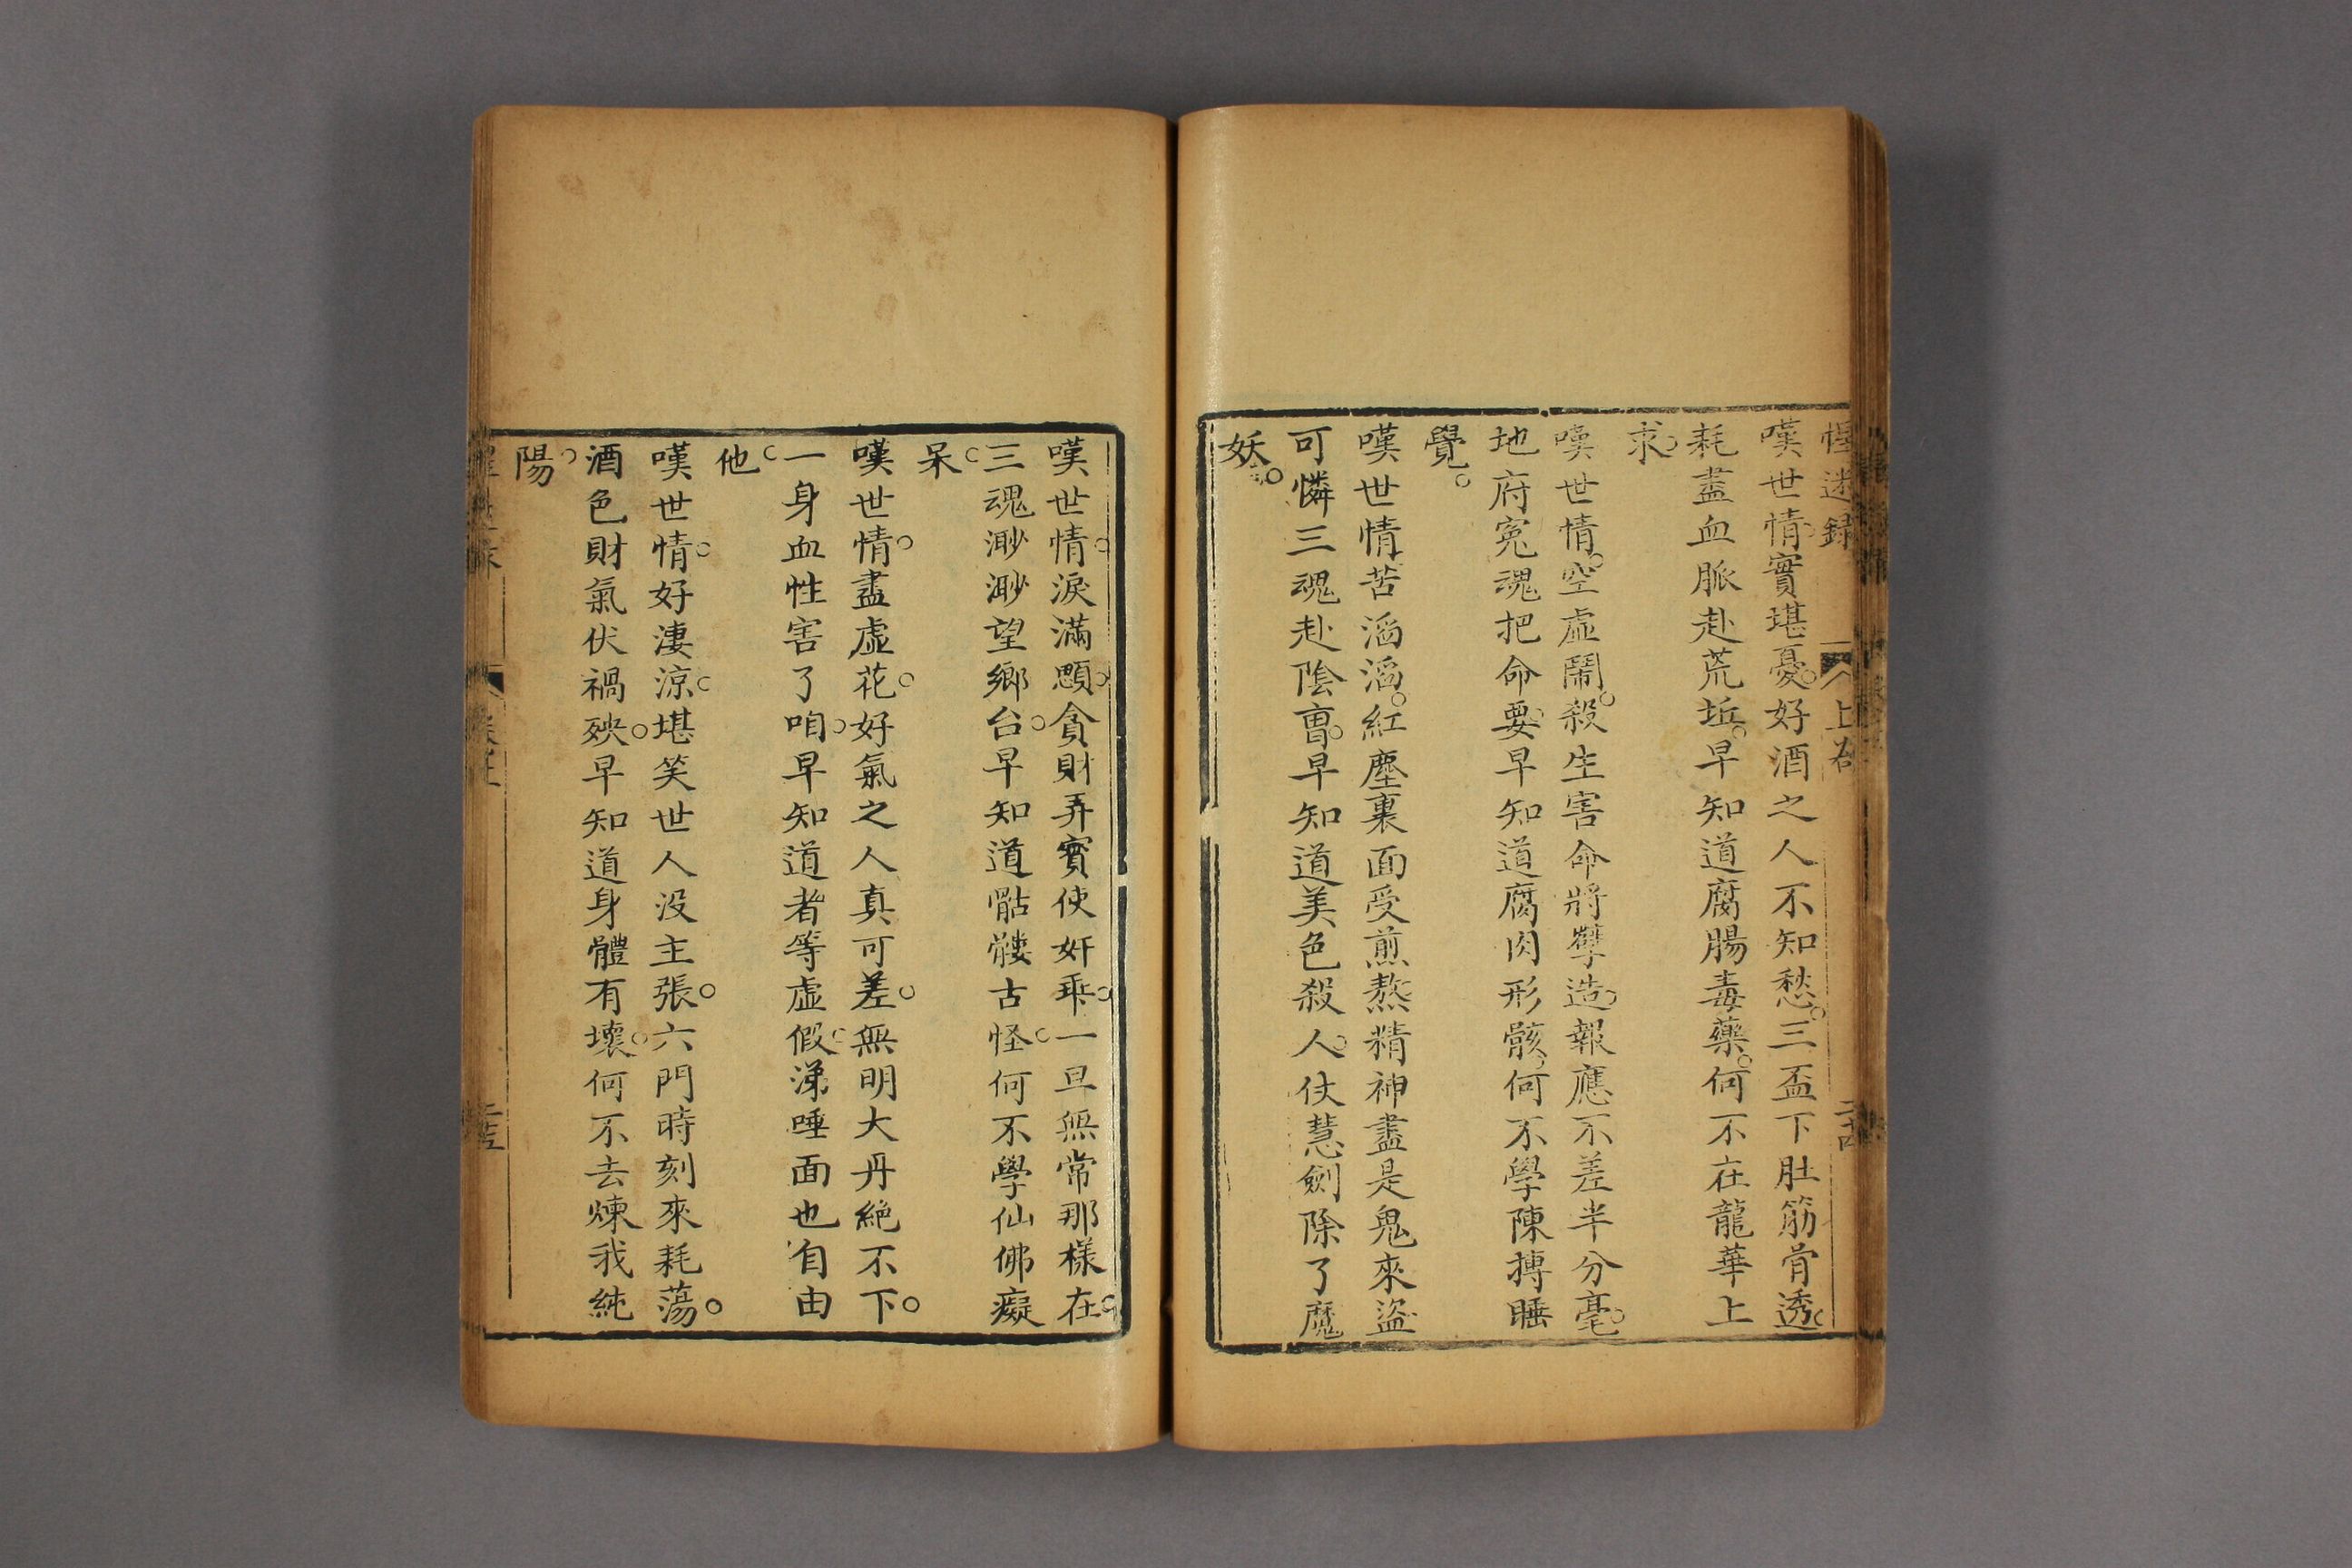 惺迷錄　上卷　二十四
嘆世情實堪憂。好酒之人不知愁。三盃下肚筋骨透。
耗盡血脈赴荒坵。早知道腐腸毒藥。何不在龍華上
求。
嘆世情。空虛鬧。殺生害命將孽造。報應不差半分毫。
地府冤魂把命要。早知道腐肉形骸。何不學陳摶睡
覺。
嘆世情苦滔滔。紅塵裏面受煎熬精神盡是鬼來盜
可憐三魂赴陰曺。早知道美色殺人。仗慧劍除了魔
妖。
嘆世情。淚滿顋。貪財弄寶使奸乖。一旦無常那樣在。
三魂渺渺望鄉台。早知道骷髏古怪。何不學仙佛癡
呆。
嘆世情。盡虛花。好氣之人真可差。無明大丹絕不下。
一身血性害了咱。早知道者等虛假。涕唾面也自由
他。
嘆世情。好淒涼。堪笑世人没主張。六門時刻來耗蕩。
酒色財氣伏禍殃。早知道身體有壞。何不去煉我純
陽。